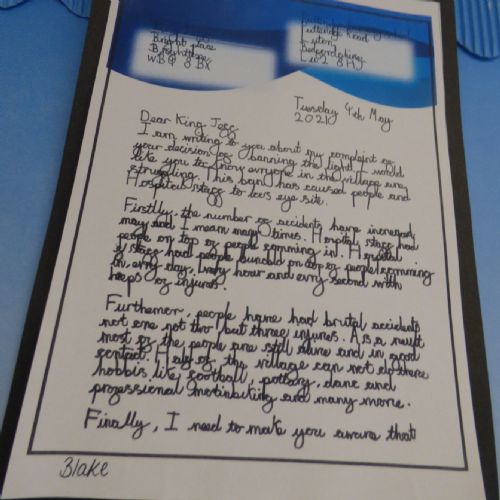 Bright place
WB9 8BX
Road
Luton
Bedfordshire
LU2 8HJ
Tuesday 4th May
2021
Dear King Joff,
I am writing to you about my complaint of
your decision of banning the light. I would
like you to know everyone in the village are
struggling. This ban has caused people and
Hospital staff to loes eye site.
Firstlly, the number of accidents have increased
many and I mean many times. Hospital staff had
people on top of people comming in. Hospital
staff had people bundled on top of people comming
in evry day, evry hour and evry second with
heeps of injures.
Furthemor, people have had brutal accidents
not one not two but three injures. As a result
most of the people are still alive and in good
contact. Half of the village can not do there
hobbis like football, pottary, dance and
professional motinbiking and many more.
Finally, I need to make you aware that
Blake